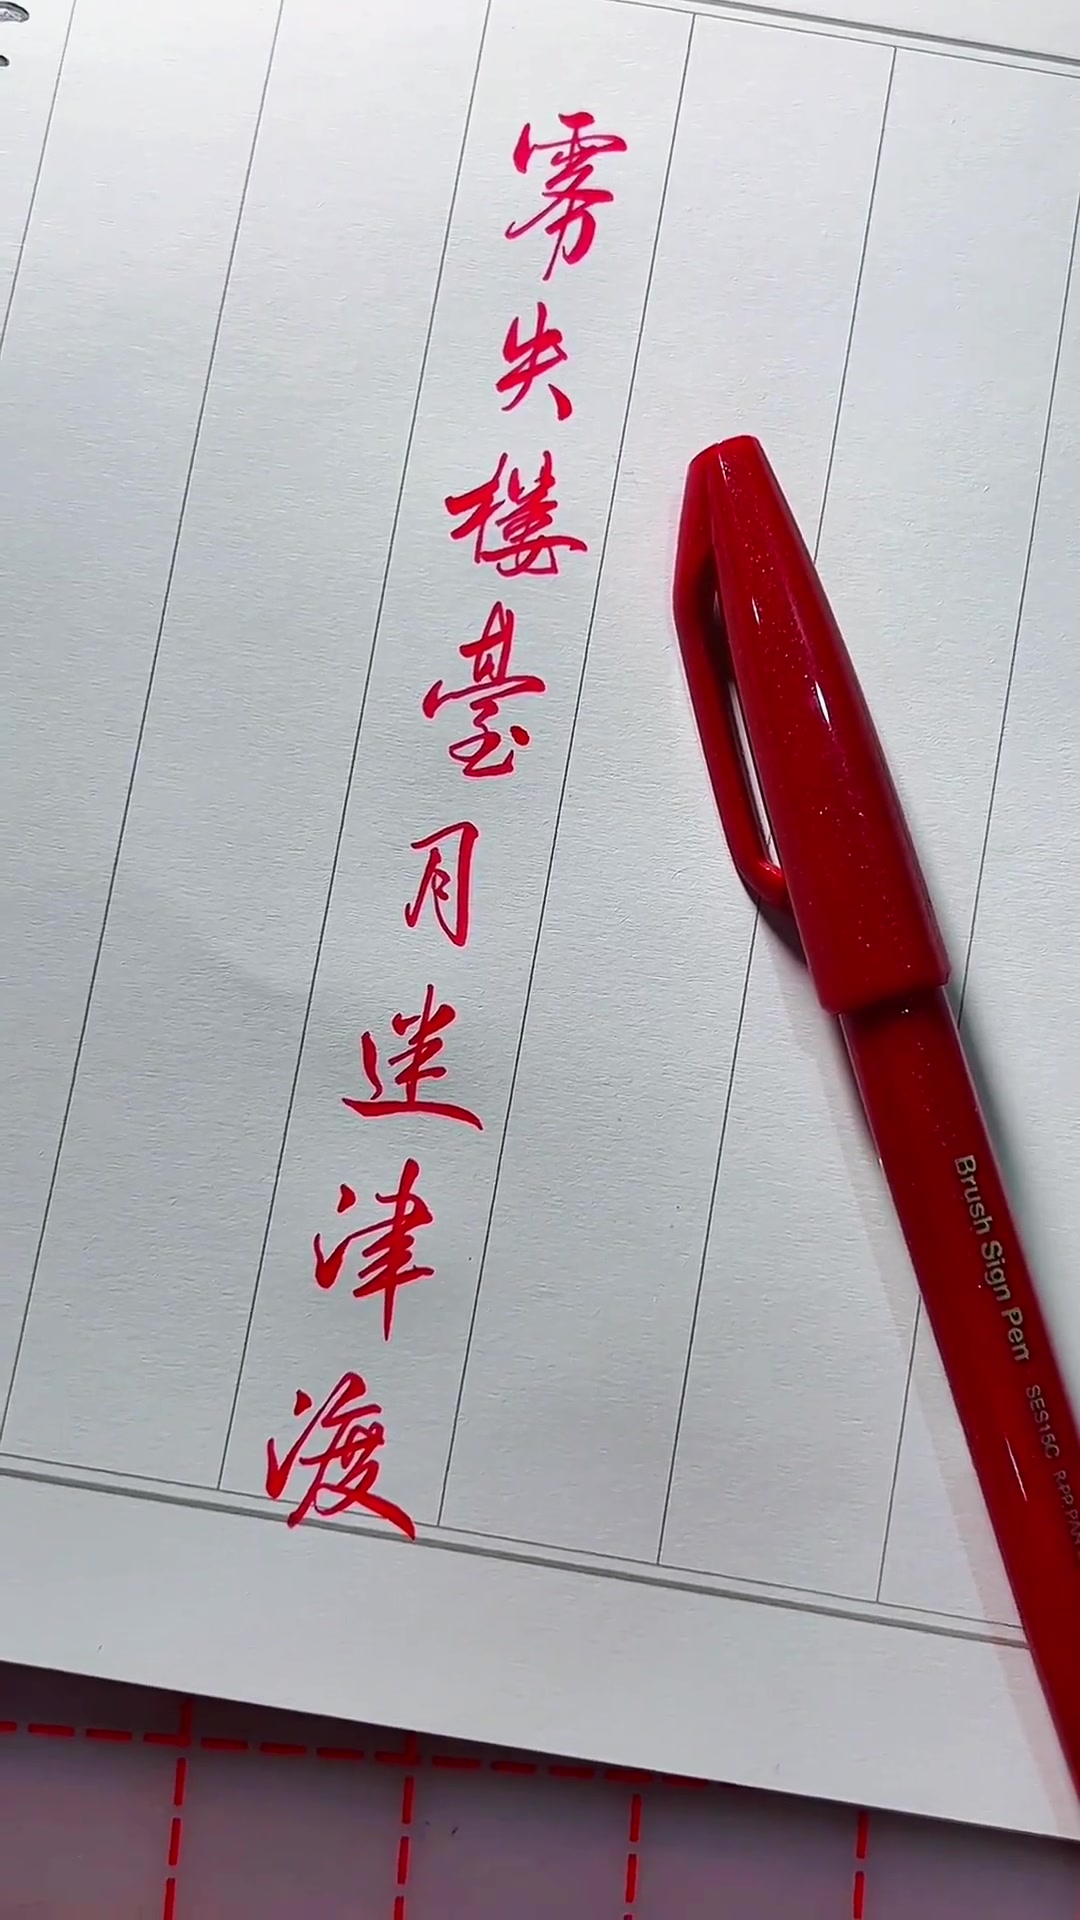 雾失樓臺月迷津渡
Brush Sign Pen SES15C